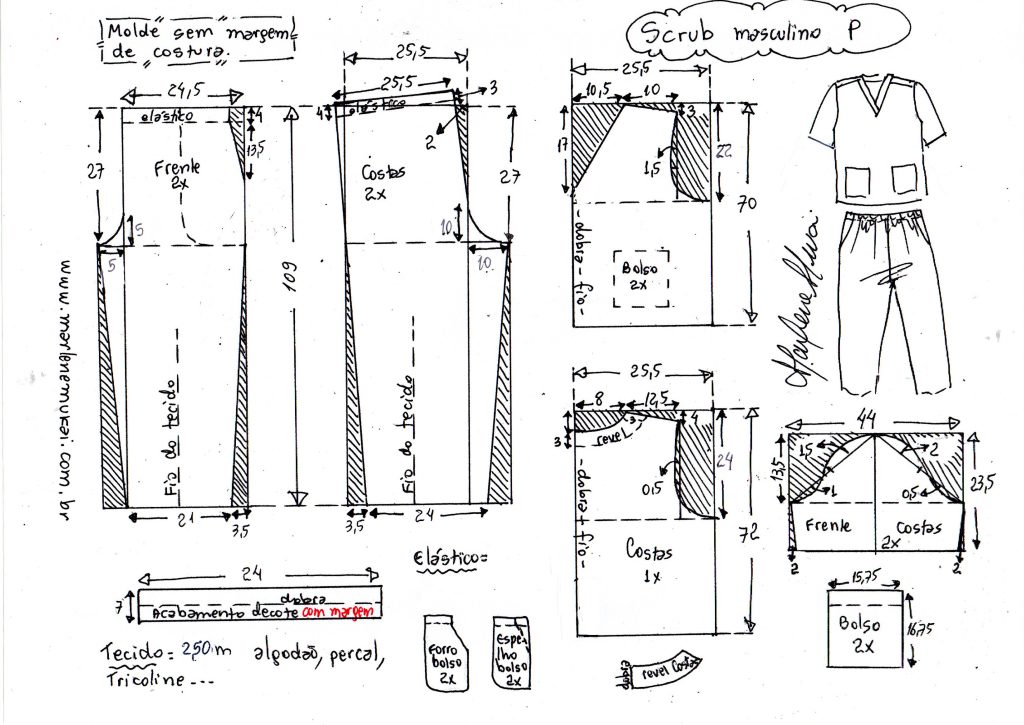 Molde sem margem
de costura.
Scrub masculino P
24,5
elástico
4
13,5
27
Frente
2x
5
5
109
Fio do tecido
21
3,5
25,5
25,5
3
elástico
4
2
Costas
2x
27
10
10
Fio do tecido
3,5
24
www.marlenemukai.com.br
25,5
10,5
10
3
17
1,5
22
70
-dobra-fio-
Bolso
2x
Marlene Mukai
25,5
8
12,5
3
3
4
revel
0,5
24
72
-dobra+fio-
Costas
1x
44
13,5
1,5
2
1
0,5
23,5
Frente
Costas
2x
2
2
24
7
dobra
Acabamento decote com margem
Tecido= 2,50m algodão, percal,
Tricoline---
Elástico=
Forro
bolso
2x
Espe-
lho
bolso
2x
dobra
revel Costas
15,75
Bolso
2x
16,75